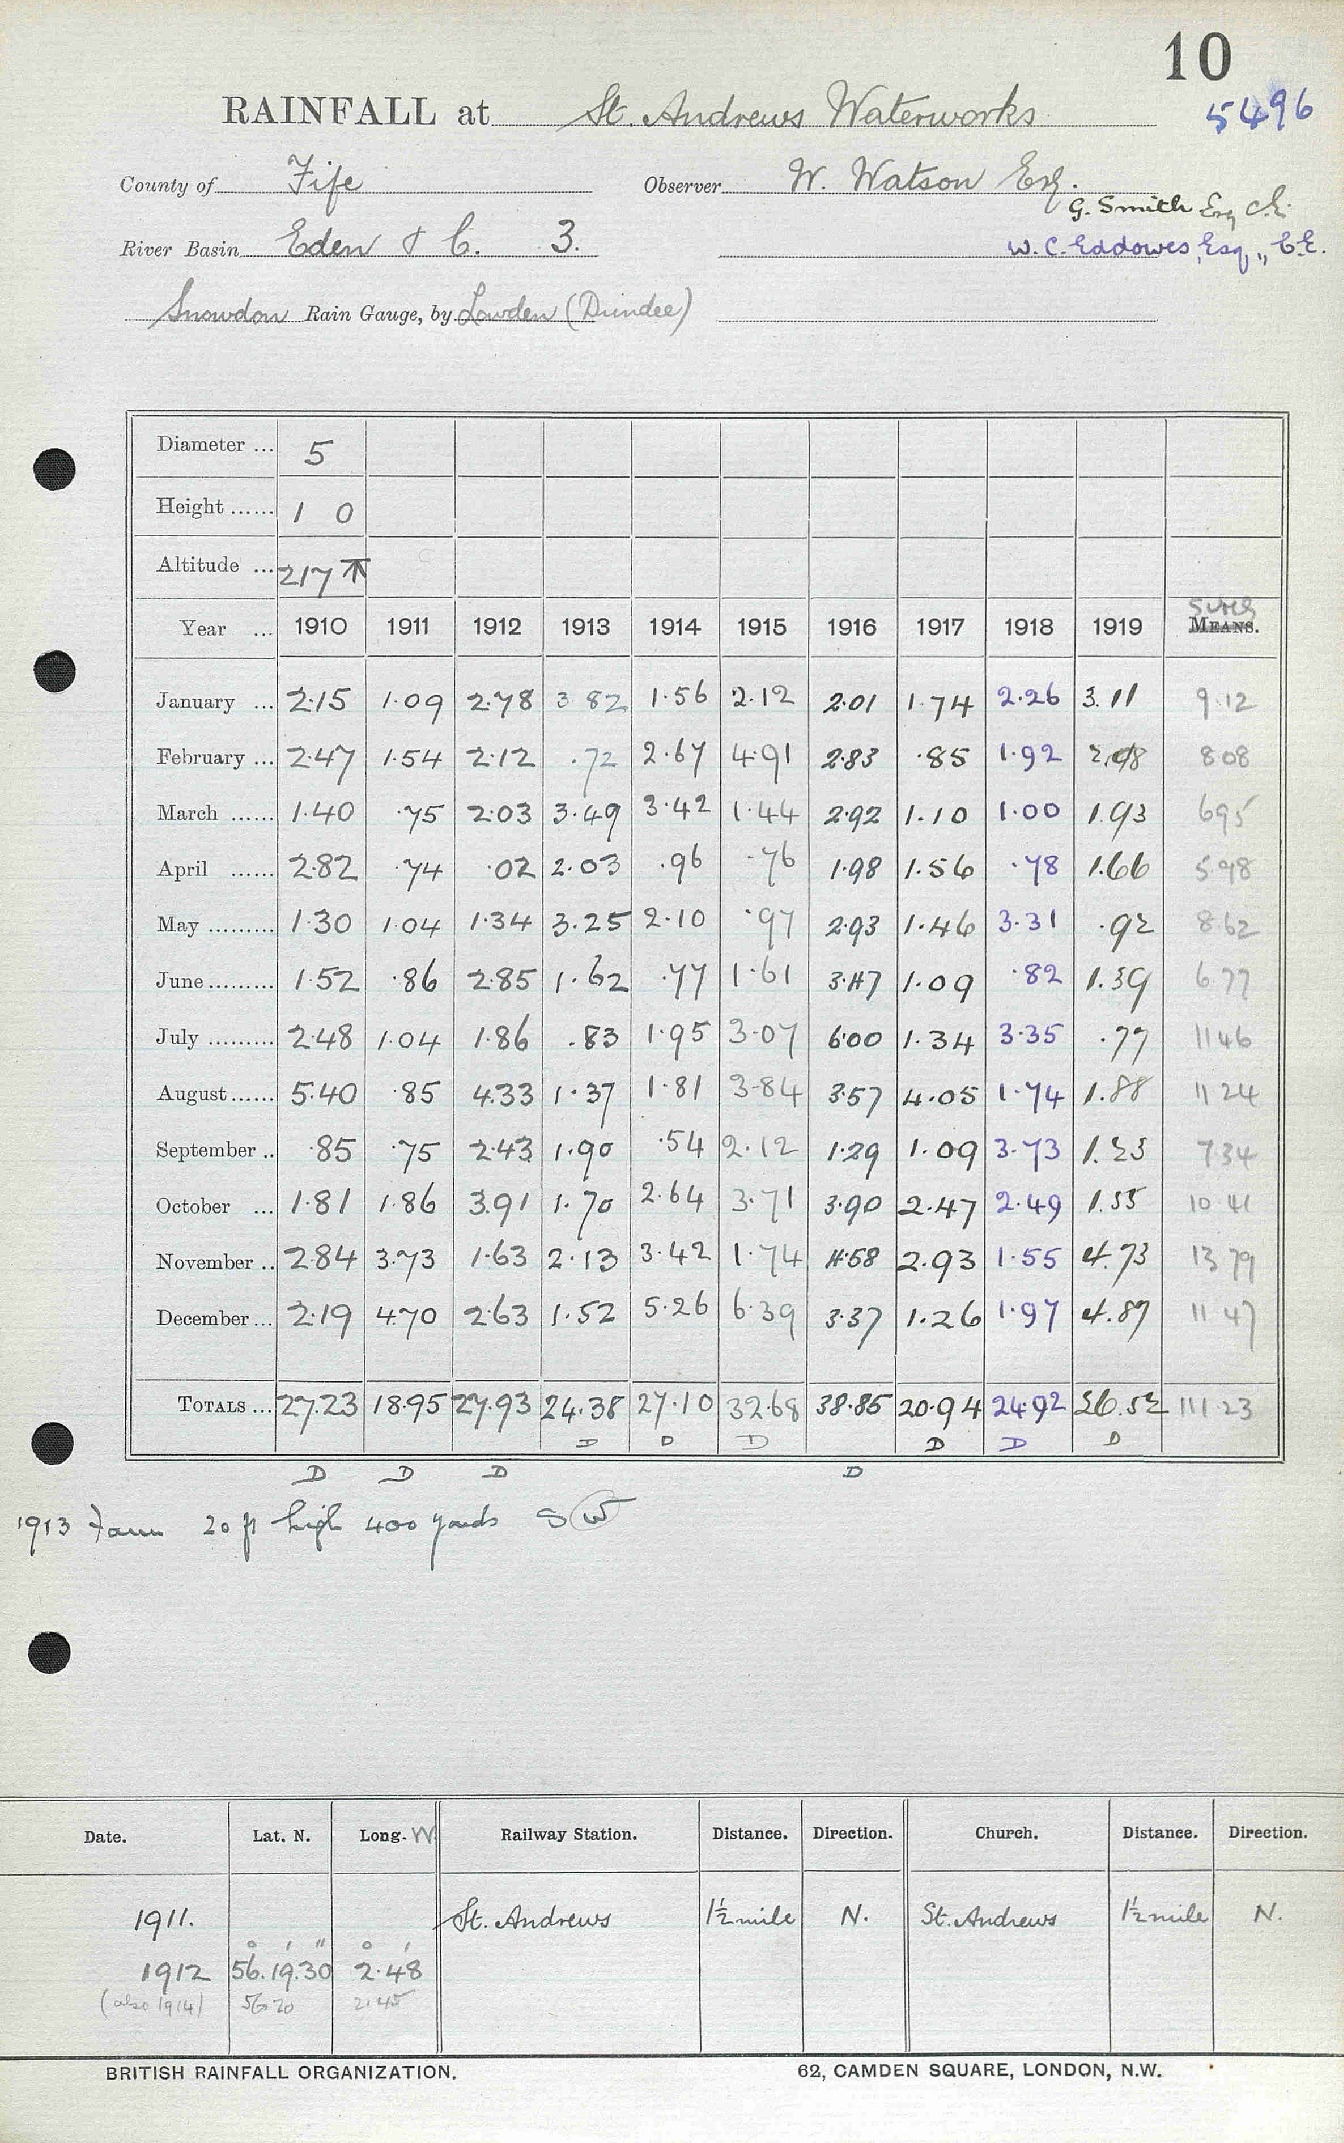 10
RAINFALL at St. Andrews Waterworks 5496
County of Fife Observer W. Watson Esq.
G. Smith Esq C.E.
River Basin Eden & C. 3. W. C. Eddowes, Esq., C.E.
Snowdon Rain Gauge, by Lowden (Dundee)
Diameter ... 5
Height ...... 1 0
Altitude ... 217
SUMS
Year ... 1910 1911 1912 1913 1914 1915 1916 1917 1918 1919 MEANS.
January ... 2.15 1.09 2.78 3.82 1.56 2.12 2.01 1.74 2.26 3.11 9.12
February ... 2.47 1.54 2.12 .72 2.67 4.91 2.83 .85 1.92 2.08 8.08
March ...... 1.40 .75 2.03 3.49 3.42 1.44 2.92 1.10 1.00 1.93 6.95
April ...... 2.82 .74 .02 2.03 .96 .76 1.98 1.56 .78 1.66 5.98
May ......... 1.30 1.04 1.34 3.25 2.10 .97 2.93 1.46 3.31 .92 8.62
June ......... 1.52 .86 2.85 1.62 .77 1.61 3.47 1.09 .82 1.39 6.77
July ......... 2.48 1.04 1.86 .83 1.95 3.07 6.00 1.34 3.35 .77 11.46
August ...... 5.40 .85 4.33 1.37 1.81 3.84 3.57 4.05 1.74 1.88 11.24
September .. .85 .75 2.43 1.90 .54 2.12 1.29 1.09 3.73 1.23 7.34
October ... 1.81 1.86 3.91 1.70 2.64 3.71 3.90 2.47 2.49 1.55 10.41
November .. 2.84 3.73 1.63 2.13 3.42 1.74 4.58 2.93 1.55 4.73 13.79
December ... 2.19 4.70 2.63 1.52 5.26 6.39 3.37 1.26 1.97 4.87 11.47
TOTALS ... 27.23 18.95 27.93 24.38 27.10 32.68 38.85 20.94 24.92 26.52 111.23
D D D D D D
D D D D
1913 Farm 20 ft high 400 yards S W
Date. Lat. N. Long. W Railway Station. Distance. Direction. Church. Distance. Direction.
1911. St. Andrews 1½ mile N. St. Andrews 1½ mile N.
° ' " ° '
1912 56.19.30 2.48
(also 1914) 56 20 2.45
BRITISH RAINFALL ORGANIZATION. 62, CAMDEN SQUARE, LONDON, N.W.